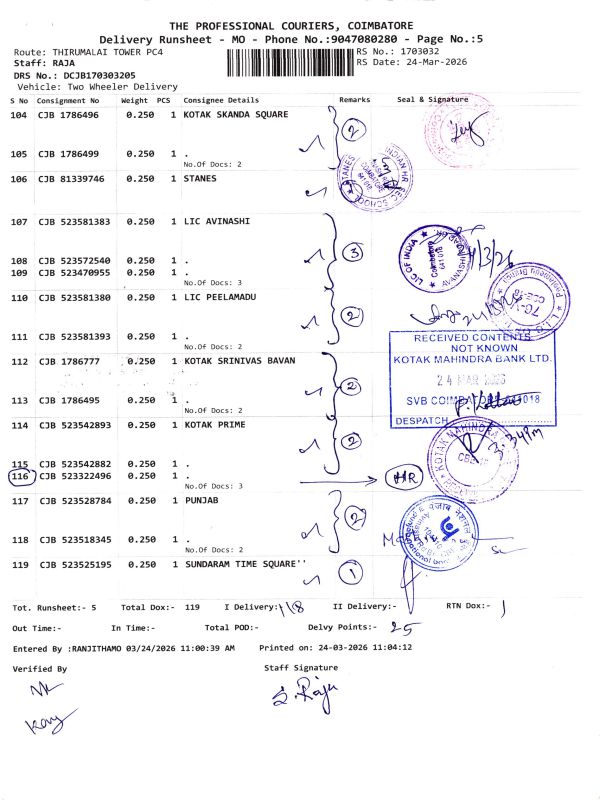 THE PROFESSIONAL COURIERS, COIMBATORE
Delivery Runsheet - MO - Phone No.:9047080280 - Page No.:5
Route: THIRUMALAI TOWER PC4 RS No.: 1703032
Staff: RAJA RS Date: 24-Mar-2026
DRS No.: DCJB170303205
Vehicle: Two Wheeler Delivery
S No Consignment No Weight PCS Consignee Details Remarks Seal & Signature
104 CJB 1786496 0.250 1 KOTAK SKANDA SQUARE
2
105 CJB 1786499 0.250 1 .
No.Of Docs: 2
106 CJB 81339746 0.250 1 STANES
107 CJB 523581383 0.250 1 LIC AVINASHI
3
108 CJB 523572540 0.250 1 .
109 CJB 523470955 0.250 1 .
No.Of Docs: 3
110 CJB 523581380 0.250 1 LIC PEELAMADU
2
111 CJB 523581393 0.250 1 .
No.Of Docs: 2
RECEIVED CONTENTS
NOT KNOWN
KOTAK MAHINDRA BANK LTD.
24 MAR 2026
SVB COIMBATORE 641018
DESPATCH
112 CJB 1786777 0.250 1 KOTAK SRINIVAS BAVAN
2
113 CJB 1786495 0.250 1 .
No.Of Docs: 2
114 CJB 523542893 0.250 1 KOTAK PRIME
2
3.34PM
115 CJB 523542882 0.250 1 .
116 CJB 523322496 0.250 1 . HR
No.Of Docs: 3
117 CJB 523528784 0.250 1 PUNJAB
2
118 CJB 523518345 0.250 1 .
No.Of Docs: 2
119 CJB 523525195 0.250 1 SUNDARAM TIME SQUARE''
1
Tot. Runsheet:- 5 Total Dox:- 119 I Delivery:- 118 II Delivery:- RTN Dox:- 1
Out Time:- In Time:- Total POD:- Delvy Points:- 25
Entered By :RANJITHAMO 03/24/2026 11:00:39 AM Printed on: 24-03-2026 11:04:12
Verified By Staff Signature
S. Raju